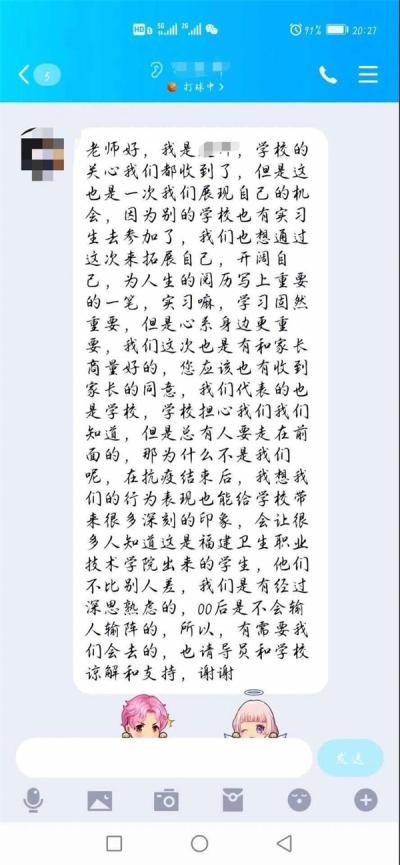 HD 5G 2G 91% 20:27
5
打球中 >
老师好，我是 ，学校的
关心我们都收到了，但是这
也是一次我们展现自己的机
会，因为别的学校也有实习
生去参加了，我们也想通过
这次来拓展自己，开阔自
己，为人生的阅历写上重要
的一笔，实习嘛，学习固然
重要，但是心系身边更重
要，我们这次也是有和家长
商量好的，您应该也有收到
家长的同意，我们代表的也
是学校，学校担心我们我们
知道，但是总有人要走在前
面的，那为什么不是我们
呢，在抗疫结束后，我想我
们的行为表现也能给学校带
来很多深刻的印象，会让很
多人知道这是福建卫生职业
技术学院出来的学生，他们
不比别人差，我们是有经过
深思熟虑的，00后是不会输
人输阵的，所以，有需要我
们会去的，也请导员和学校
谅解和支持，谢谢
发送